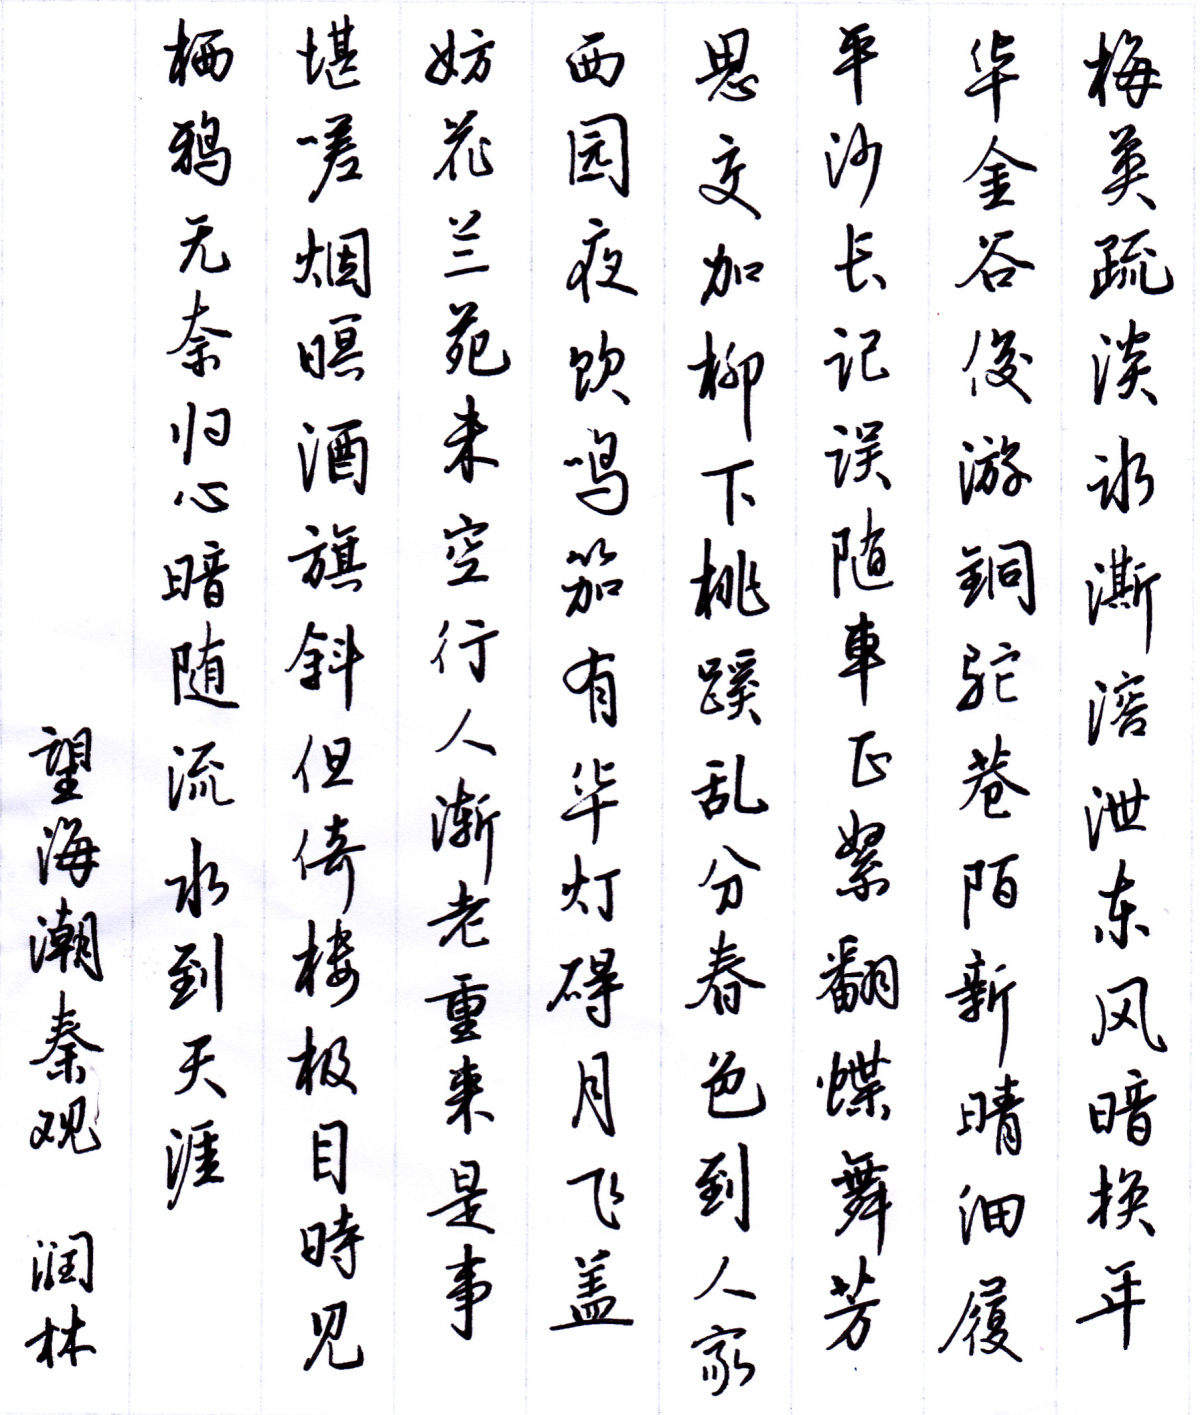 梅英疏淡冰澌溶泄东风暗换年
华金谷俊游铜驼巷陌新晴细履
平沙长记误随車正絮翻蝶舞芳
思交加柳下桃蹊乱分春色到人家
西园夜饮鸣笳有华灯碍月飞盖
妨花兰苑未空行人渐老重来是事
堪嗟烟暝酒旗斜但倚楼极目時见
栖鸦无奈归心暗随流水到天涯
望海潮秦观 润林